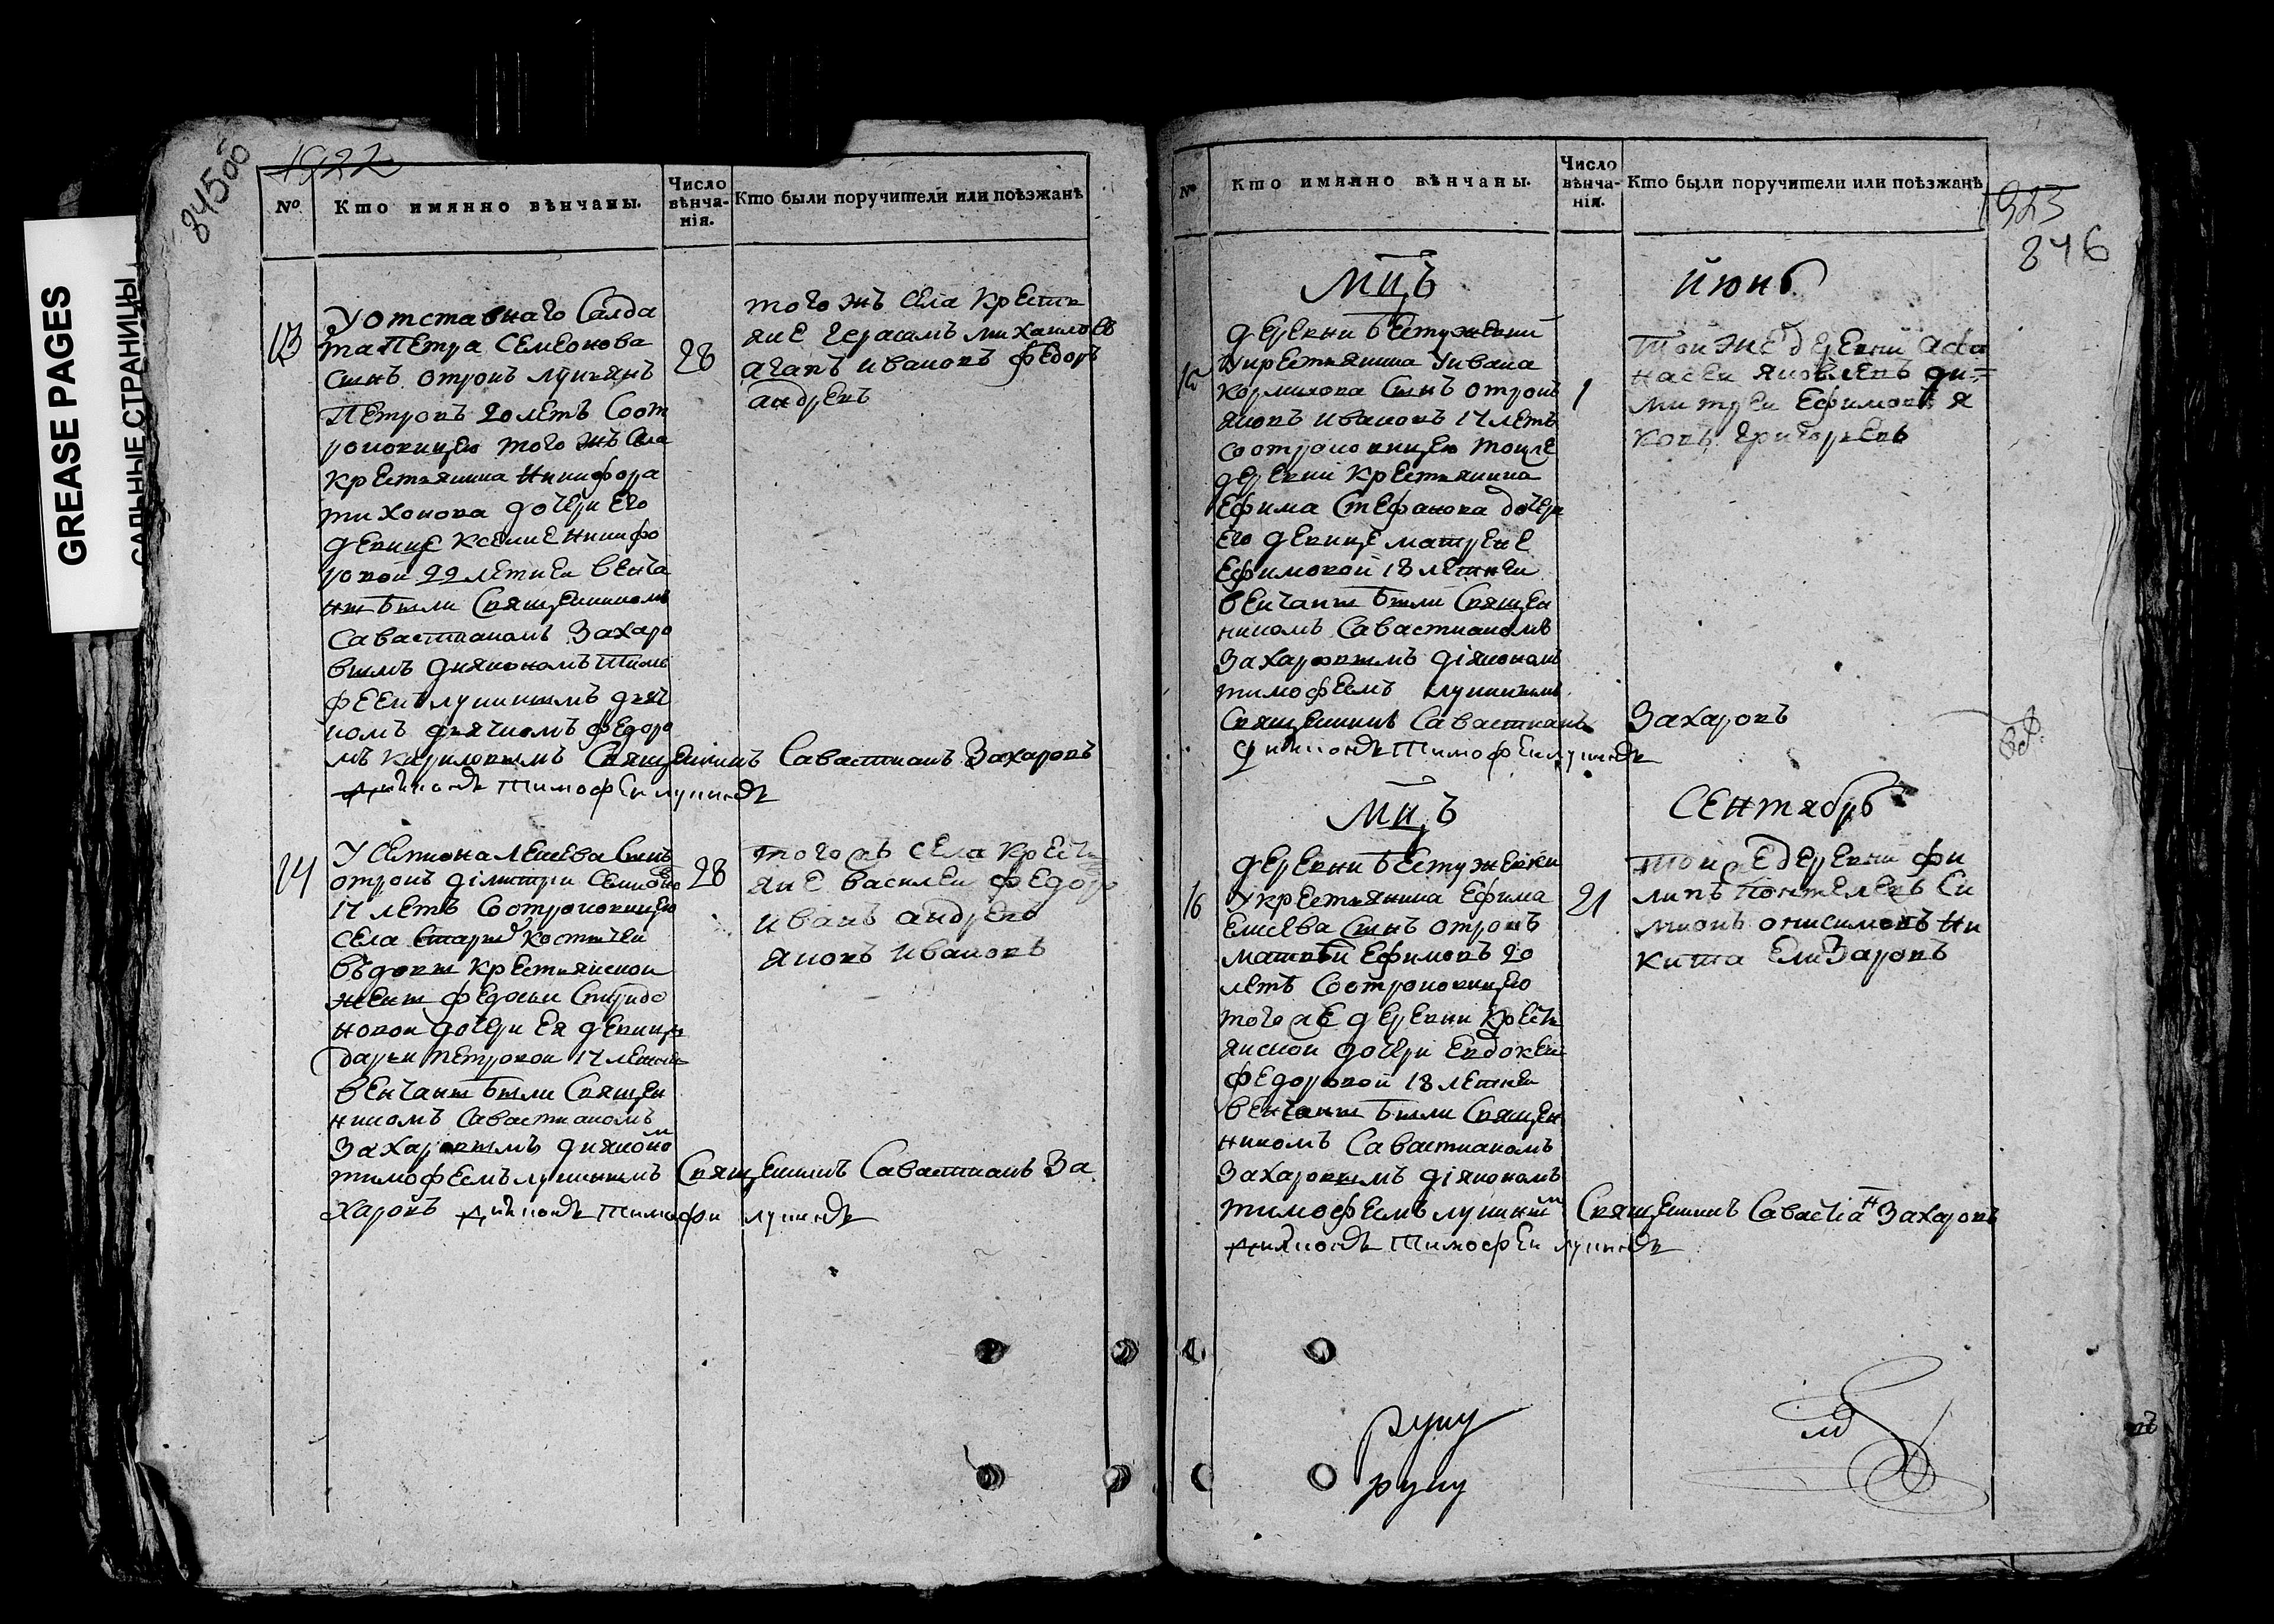 GREASE PAGES
САЛЬНЫЕ СТРАНИЦЫ
845об
1922
№
Кто имянно вѣнчаны.
Число вѣнча-нія.
Кто были поручители или поѣзжанѣ
13
У отставнаго Салда
та Петра Семенова
сынъ отрокъ лукьянъ
Петровъ 20 летъ Сот
роковицею того жъ села
крестьянина Никифора
тихонова дочери его
девице ксение Никифо
ровой 22 летнеи венча
ны были Священникомъ
Савастианомъ Захаро
вымъ диякономъ Тимо
феемъ лукинымъ
дьячкомъ федоро
мъ кириловымъ Священникъ Савастианъ Захаровъ
диаконъ Тимофеи лукинъ
28
того жъ села кресть
яне герасимъ михаиловъ
агапъ ивановъ федоръ
андреевъ
14
У Семиона Сынъ
отрокъ димитри Семионо
17 летъ Сотроковицею
села Стары Костычеи
въдовы крестьянскои
жены федосьи Спиридо
новои дочери ея девице
дарьи петровои 17 летнеи
венчаны были Священ
никомъ Савастианомъ
Захаровымъ дияконо
тимофеемъ лукинымъ Священникъ Савастианъ За
харовъ диаконъ Тимофи лукинъ
28
того жъ села кресть
яне василеи федоро
иванъ андреевъ
яковъ ивановъ
1923
846
№
Кто имянно вѣнчаны.
Число вѣнча-нія.
Кто были поручители или поѣзжанѣ
Мцъ
Июнь
15
деревни бестужевки
У крестьянина Ивана
Кормилова Сынъ отрокъ
яковъ ивановъ 17 летъ
сотроковицею тои же
деревни крестьянина
Ефима Стефанова дочери
его девице матрене
Ефимовой 18 летнеи
венчаны были Священ
никомъ Савастианомъ
Захаровымъ діякономъ
тимофеемъ лукинымъ
Священникъ Савастианъ Захаровъ
диаконъ Тимофеи лукинъ
1
Той же деревни афа
насеи яковлевъ ди=
митреи Ефимовъ я
ковъ григорьевъ
Мцъ
Сентябрь
16
деревни бестужевки
У крестьянина Ефима
Елисева Сынъ отрокъ
матвѣи Ефимовъ 20
летъ Сотроковицею
того же деревни кресть
янскои дочери Евдокеи
федоровой 18 летнеи
венчаны были Священ
никомъ Савастианомъ
Захаровымъ діякономъ
тимофеемъ лукины Священникъ Савастіа Захаровъ
диаконъ Тимофеи лукинъ
21
той же деревни фи
липъ Си
мионъ онисимовъ Ни
кита Елизаровъ
руку
руку